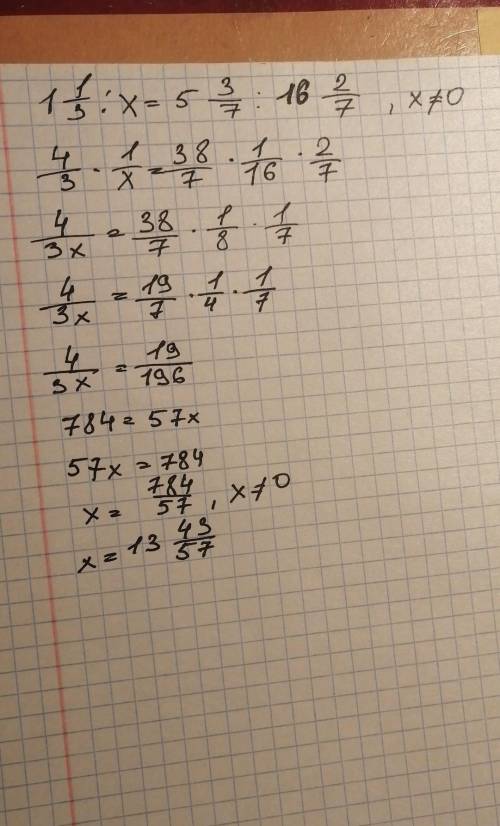 1 1/3 : x = 5 3/7 : 16 2/7 , x ≠ 0
4/3 · 1/x = 38/7 · 1/16 · 2/7
4/3x = 38/7 · 1/8 · 1/7
4/3x = 19/7 · 1/4 · 1/7
4/3x = 19/196
784 = 57x
57x = 784
x = 784/57 , x ≠ 0
x = 13 43/57